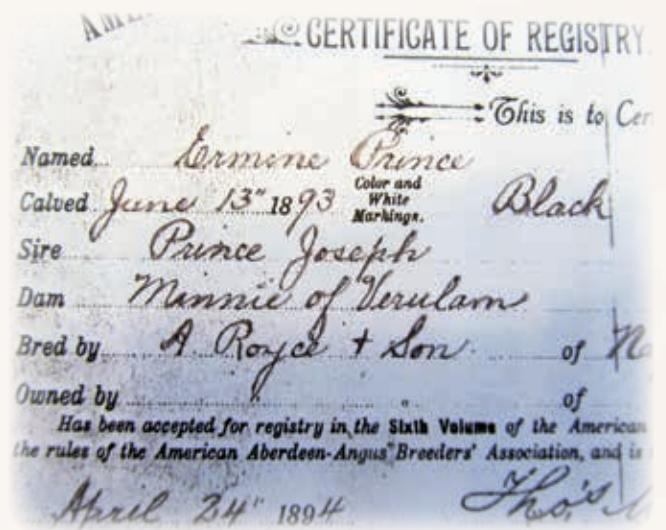 CERTIFICATE OF REGISTRY
This is to
Named Ermine Prince
Calved June 13" 1893 Color and White Markings. Black
Sire Prince Joseph
Dam Minnie of Verulam
Bred by A Royce + Son of
Owned by " " of
Has been accepted for registry in the Sixth Volume of the American
the rules of the American Aberdeen-Angus Breeders' Association, and is
April 24" 1894 Tho's